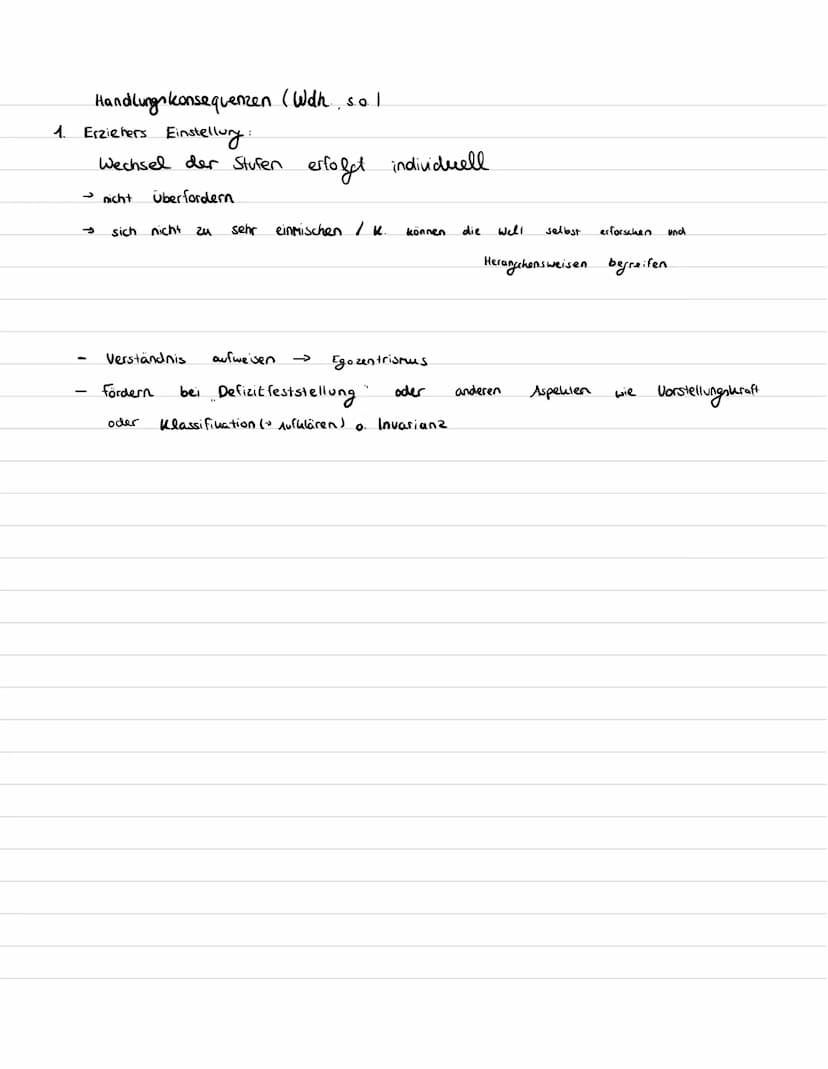 Handlungskonsequenzen (Wdh. s.o)
1. Erziehers Einstellung:
Wechsel der Stufen erfolgt individuell
→ nicht überfordern
→ sich nicht zu sehr einmischen / K. können die Welt selbst erforschen und
Herangehensweisen begreifen
- Verständnis aufweisen → Egozentrismus
- Fördern bei „Defizitfeststellung" oder anderen Aspekten wie Vorstellungskraft
oder Klassifikation (→ Aufklären) o. Invarianz